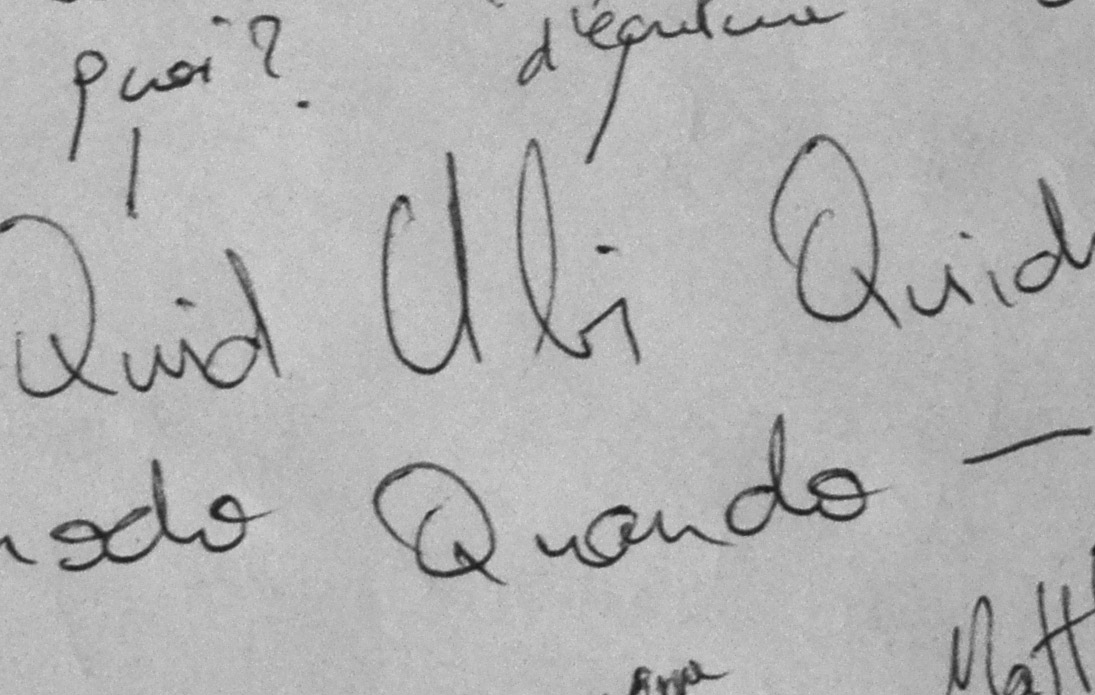 quoi? d'écriture
Quid Ubi Quid
modo Quando —
Matt